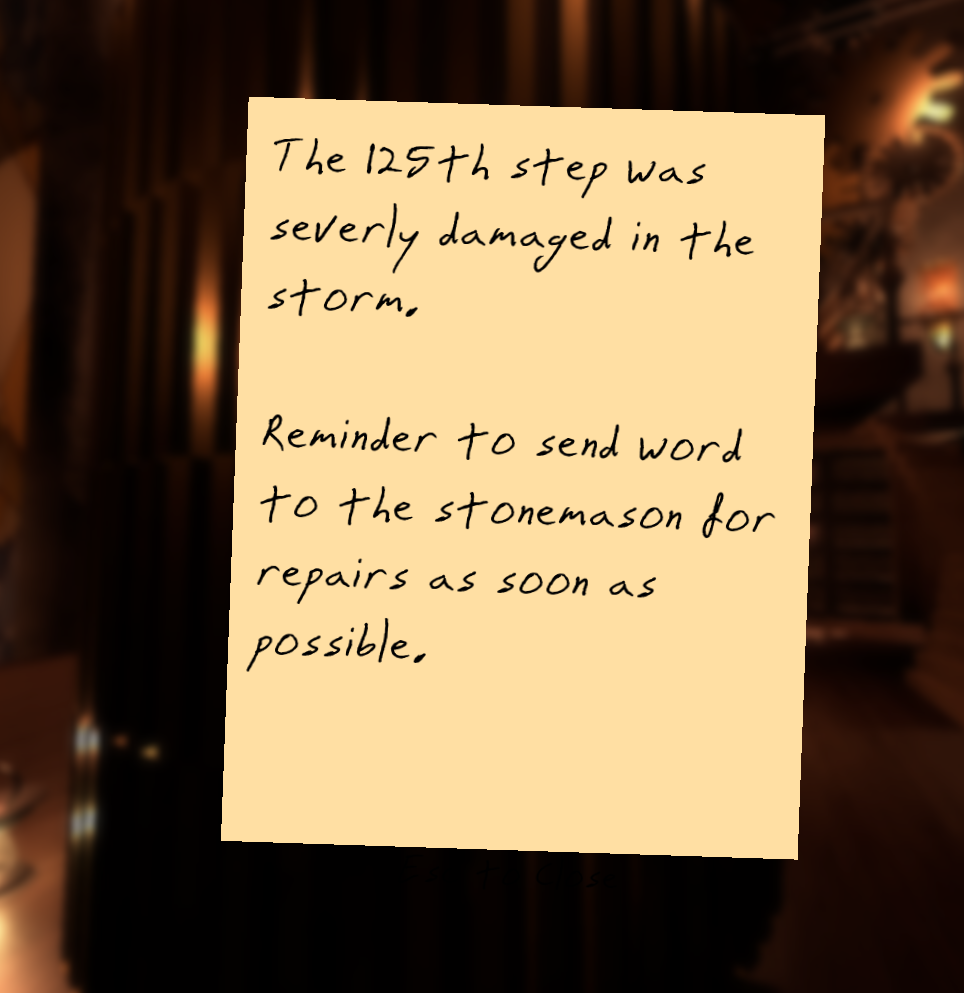 The 125th step was
severly damaged in the
storm.
Reminder to send word
to the stonemason for
repairs as soon as
possible.